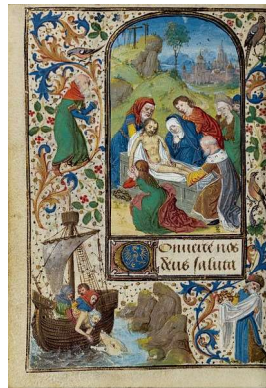 Conuerte nos
deus saluta